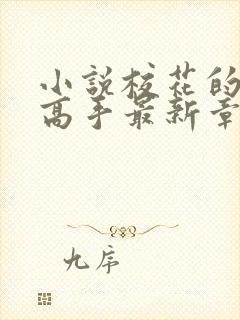 小説校花的
高手最新章
九帝